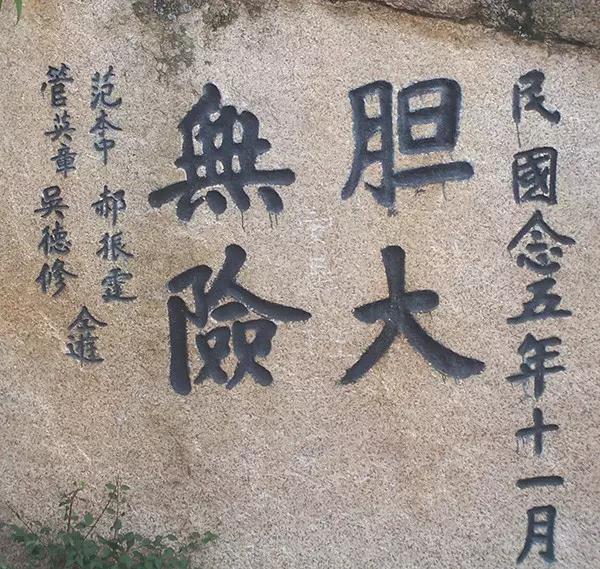 民國念五年十一月
胆大
無險
范本中 郝振霊
管英章 吳德修
仝遊